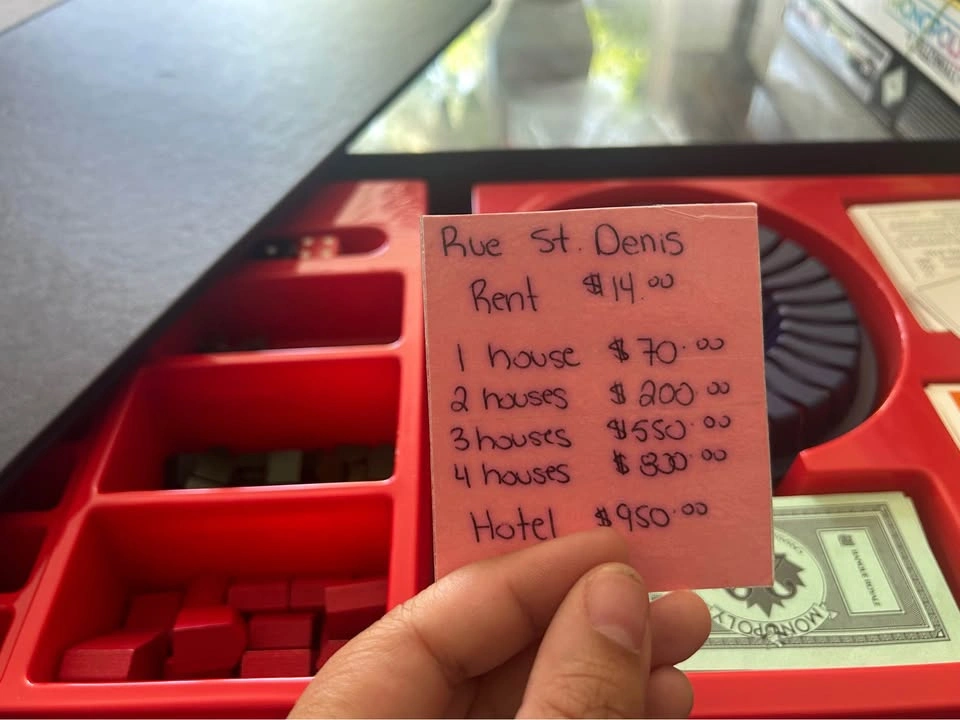 Rue St. Denis
Rent $14.00
1 house $70.00
2 houses $200.00
3 houses $550.00
4 houses $800.00
Hotel $950.00
BANQUE ROYALE
MONOPOLY